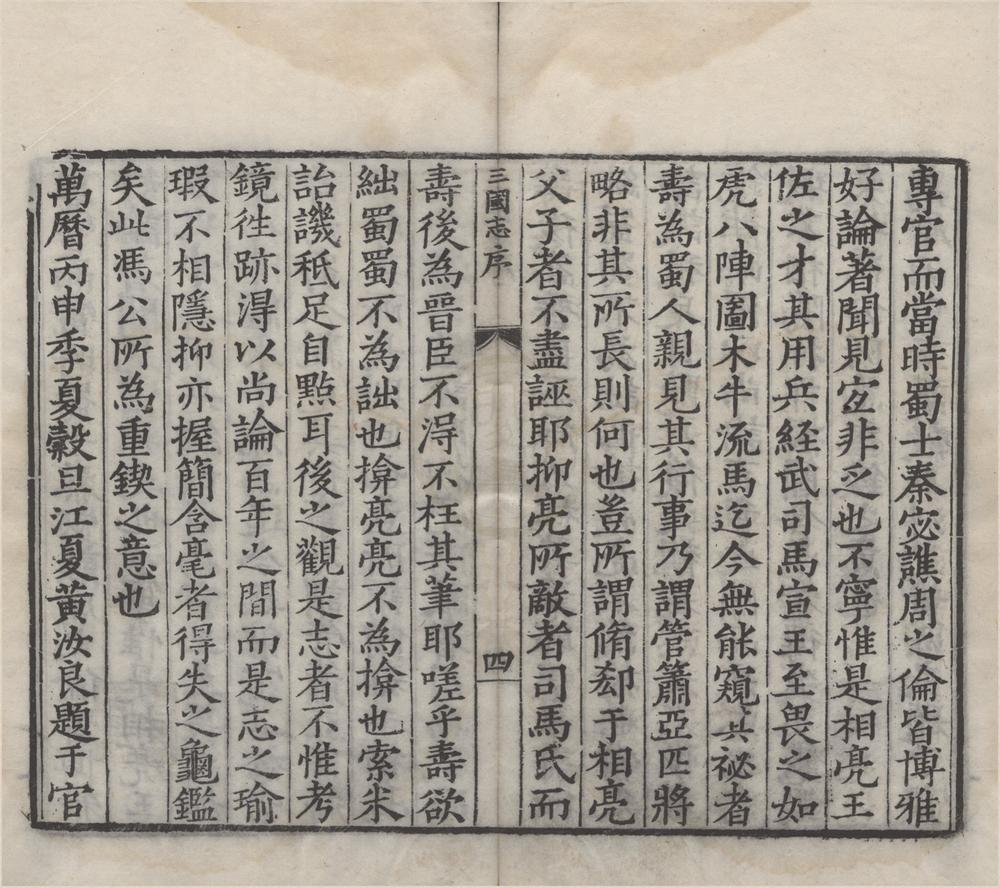 專官而當時蜀士秦宓譙周之倫皆博雅
好論著聞見宐非乏也不寧惟是相亮王
佐之才其用兵経武司馬宣王至畏之如
虎八陣圖木牛流馬迄今無能窺其祕者
壽為蜀人親見其行事乃謂管簫亞匹將
略非其所長則何也豈所謂脩郄于相亮
父子者不盡誣耶抑亮所敵者司馬氏而
三國志序
四
壽後為晉臣不淂不枉其筆耶嗟乎壽欲
絀蜀蜀不為詘也揜亮亮不為揜也索米
詒譏秪足自㸃耳後之觀是志者不惟考
鏡徃跡淂以尚論百年之間而是志之瑜
瑕不相隱抑亦握簡含毫者得失之龜鑑
矣此馮公所為重鍥之意也
萬曆丙申季夏穀旦江夏黃汝良題于官